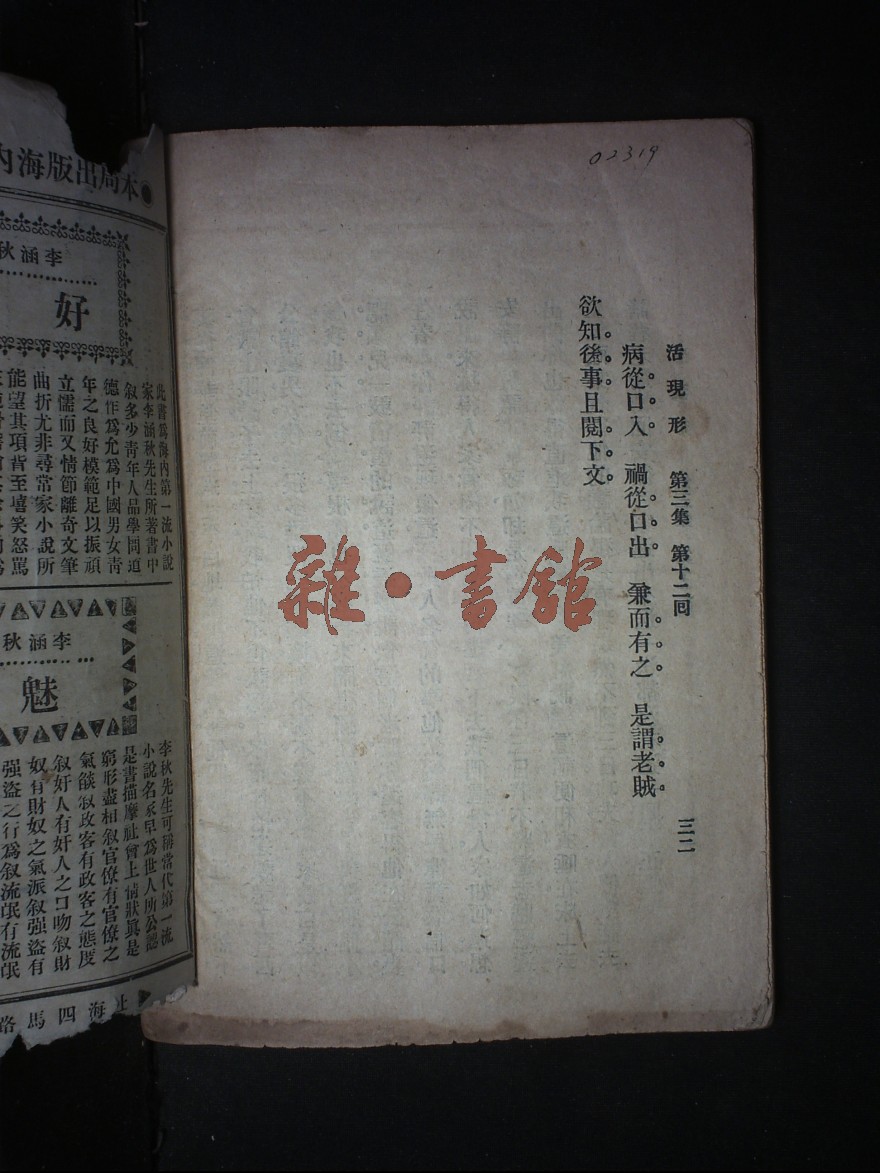 02319
活現形 第三集 第十二回 三二
病從口入 禍從口出 兼而有之 是謂老賊
欲知後事且閱下文
雜·書館
●本局出版海內
李涵秋
好
此書爲海內第一流小說
家李涵秋先生所著書中
叙多少靑年人品學問道
德作爲允爲中國男女靑
年之良好模範足以振頑
立懦而又情節離奇文筆
曲折尤非尋常家小說所
能望其項背至嬉笑怒罵
李涵秋
魅
李秋先生可稱當代第一流
小說名家早爲世人所公認
是書描摩社會上情狀眞是
窮形盡相叙官僚有官僚之
氣燄叙政客有政客之態度
叙奸人有奸人之口吻叙財
奴有財奴之氣派叙强盜有
强盜之行爲叙流氓有流氓
上海四馬路